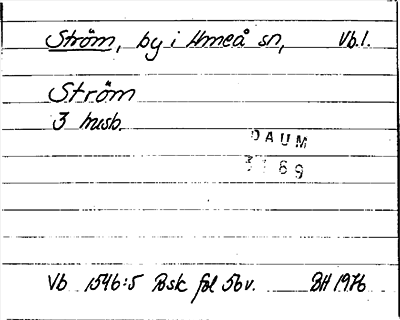 Ström, by i Umeå sn, Vb.l.
Ström
3 husb.
DAUM
3169
Vb 1546:5 Bsk fol 56v. BH 1976